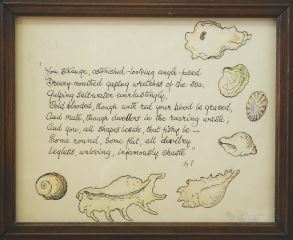 "You strange, astonished-looking, angle-faced
Dreary-mouthed gaping wretches of the sea,
Gulping Salt-water everlastingly,
Cold blooded, though with red your blood be graced,
And mute, though dwellers in the roaring waste;
And you, all shapes beside, that fishy be—
Some round, Some flat, all devilry,
Legless, unloving, infamously chaste"